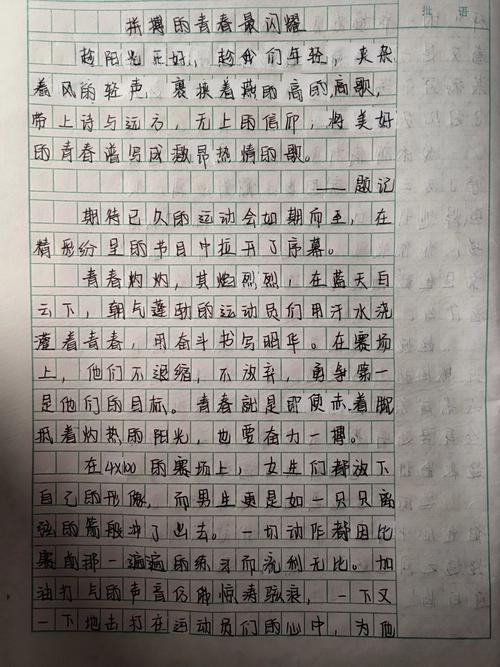 批 语
拼搏的青春最闪耀
趁阳光正好，趁我们年轻，夹杂
着风的轻声，裹挟着燕的高的高歌，
带上诗与远方，无上的信仰，将美好
的青春谱写成激昂热情的歌。
——题记
期待已久的运动会如期而至，在
精彩纷呈的节目中拉开了序幕。
青春灼灼，其焰烈烈，在蓝天白
云下，朝气蓬勃的运动员们用汗水浇
灌着青春，用奋斗书写明华。在赛场
上，他们不退缩，不放弃，勇争第一
是他们的目标。青春就是即使赤着脚
抵着灼热的阳光，也要奋力一搏。
在4x100的赛场上，女生们都放下
自己的形像，而男生更是如一只只离
弦的箭般冲了出去。一切动作都因比
赛前那一遍遍的练习而流利无比。加
油打气的声音仍能惊涛骇哀，一下又
一下地击打在运动员们的心中，为他